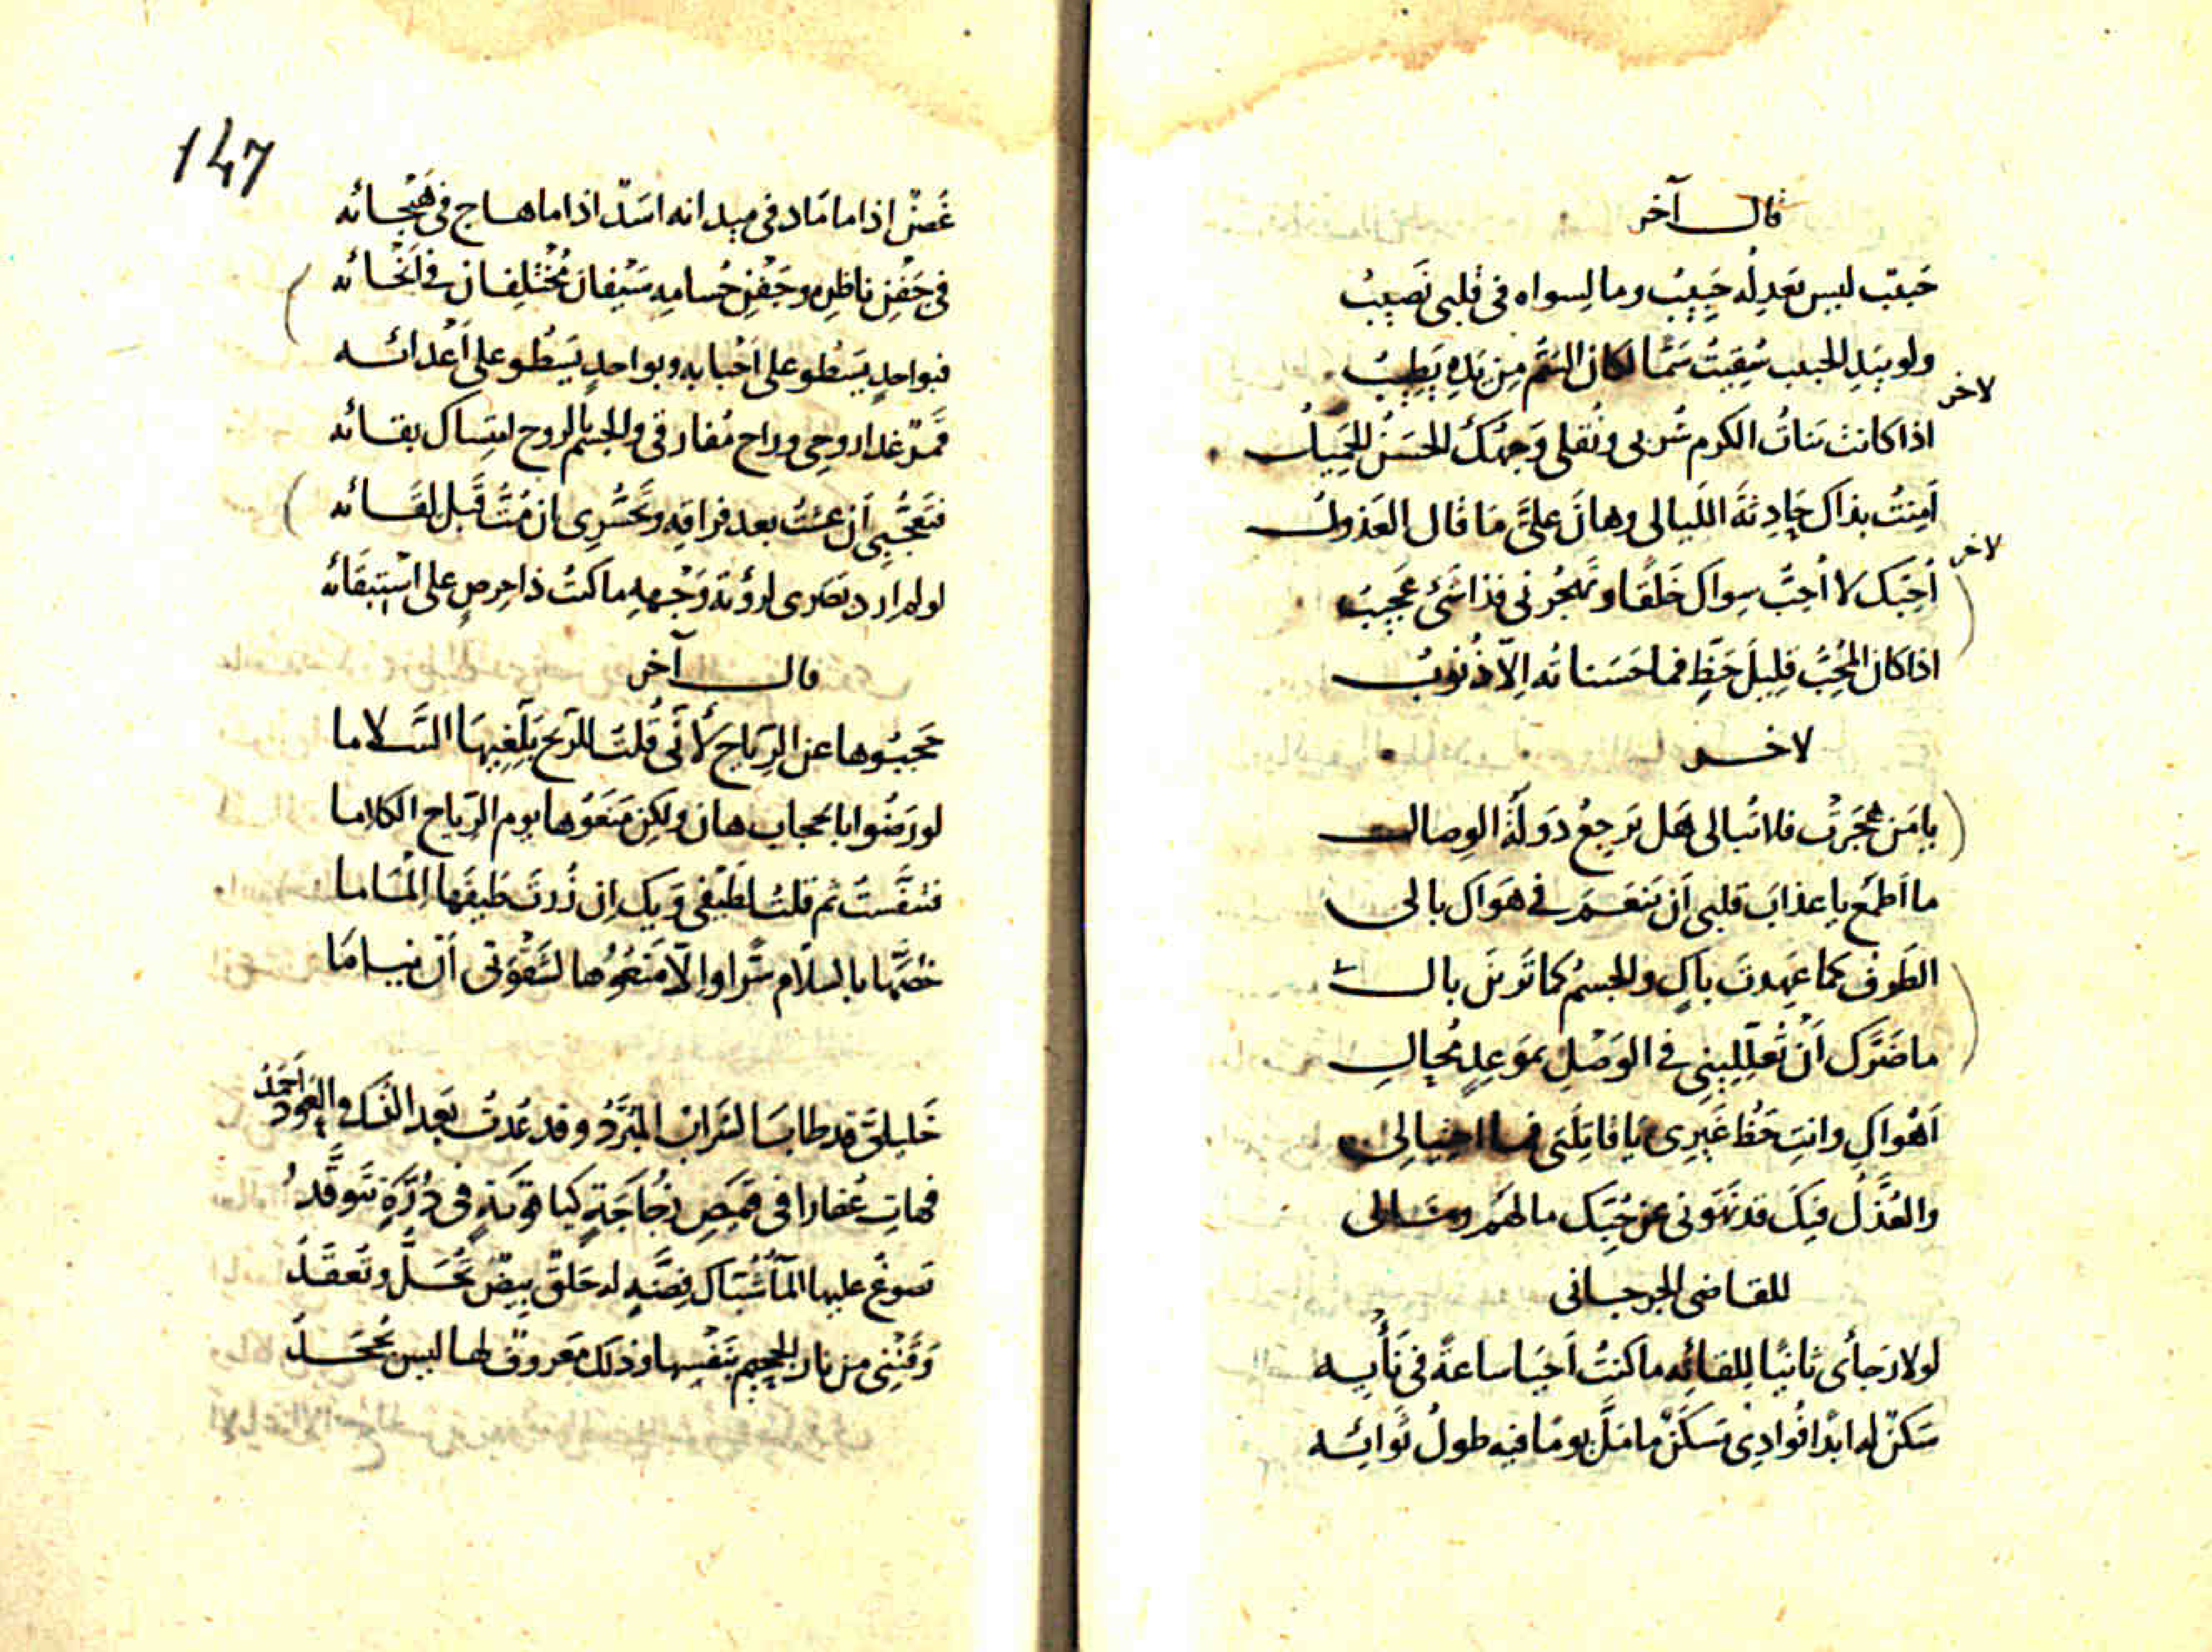 قال آخر
حَبيبٌ ليس يَعدِلُه حَبِيبُ وما لِسواه في قلبى نَصيبُ
ولو بيَدِ الحبيب سُقِيتُ سَمًّا لكان السَّمُّ مِن يَدِهِ يَطِيبُ
لاخر
اذا كانت بنَاتُ الكرم شُربى ونُقلى وَجهُكَ الحَسَنُ الجَمِيلُ
اَمِنتُ بذاك حَادِثَةَ اللَّيالى وهانَ علىَّ مَا قال العَذولُ
لاخر
اُحِبّك لا اُحِبُّ سِواك خَلقًا وتَهجُرنى فذا شَئ عَجِيبُ
اذا كان المُحِبُّ قليلَ حَظٍّ فما حَسَناتُه اِلّا ذُنوبُ
لاخر
يا مَن هَجَرَتْ فلا تُبالى هَل تَرجِعُ دَولَةُ الوِصال
ما اَطمَع يا عذابَ قلبى اَن يَنعَمَ فى هَواكَ بالى
الطَرفُ كما عَهِدتَ باكٍ والجسمُ كما تَرينَ بال
ما ضَرَّك اَنْ تُعلِّلِينى فى الوَصْلِ بمَوعِدٍ مُحالِ
اَهْواكِ وانتِ حَظُّ غَيرِى يَا قاتِلَتى فما احتِيالِى
والعُذَّلُ فيكَ قد نَهَونى عن حُبّك مالهَم ومَالى
للقاضى الجرجانى
لولا رَجائى ثانيًا للقائِه ما كنتُ اَحيَا ساعةً فى نَأيِه
سَكَنٌ له ابدًا فُوادِى مَسكَنٌ ما مَلَّ يومًا فيه طولُ ثَوائِه
147
غُصنٌ اذا ما مَاد فى ميدانه اسَدٌ اذا ما هاج فى هَيْجائه
فى جَفْنِ ناظِرِه وجَفْنِ حُسامِه سَيْفان مُخْتَلِفان فى اَنْحائه
فبواحدٍ يَسْطُو على اَحْبابه وبواحدٍ يَسطُو على اَعْدائه
فمَتى غدا روحى وراح مُفارقى والجسم بالروح امتِساك بقائه
فتَعَجُّبِى اَن عشتُ بعد فراقِه وتحَسُّرِى ان مُتُّ قَبل لقائه
لو لم ارد نَظَرى لرؤية وَجْهه ما كنتُ ذا حِرصٍ على اسْتِبقَائه
قال آخر
حَجَبُوها عن الرِّيَاحِ لأنّى قُلتُ للرّيح بَلِّغِيهَا السَّلاما
لو رَضُوا بالحجاب هان ولكن مَنَعُوها يوم الرّياح الكلاما
فتنَفَّستُ ثم قلتُ لطَيْفى وَيك اِن زُرتَ طَيفَها اِلمَاما
خُصَّها بالسلام سِرًّا والّا مَنَعُوها لشِقْوَتى اَن تناما
خَليلىّ قد طابَ الشراب المُبَرَّدُ وقد عُدتُ بَعد النُسك والعَود اَحمَدُ
فهاتِ عُقارا فى قميصِ زُجاجَةٍ كياقوتةٍ فى دُرَّةٍ تتَوقَّدُ
تصوغُ عليها المآء شُبّاك فِضَّةٍ له حَلقٌ بِيضٌ تُحَلُّ وتُعقَدُ
وَقَتْنِى من نار الجحيم بنَفْسِها وذلك مَعروفٌ لها ليس يُجحَدُ